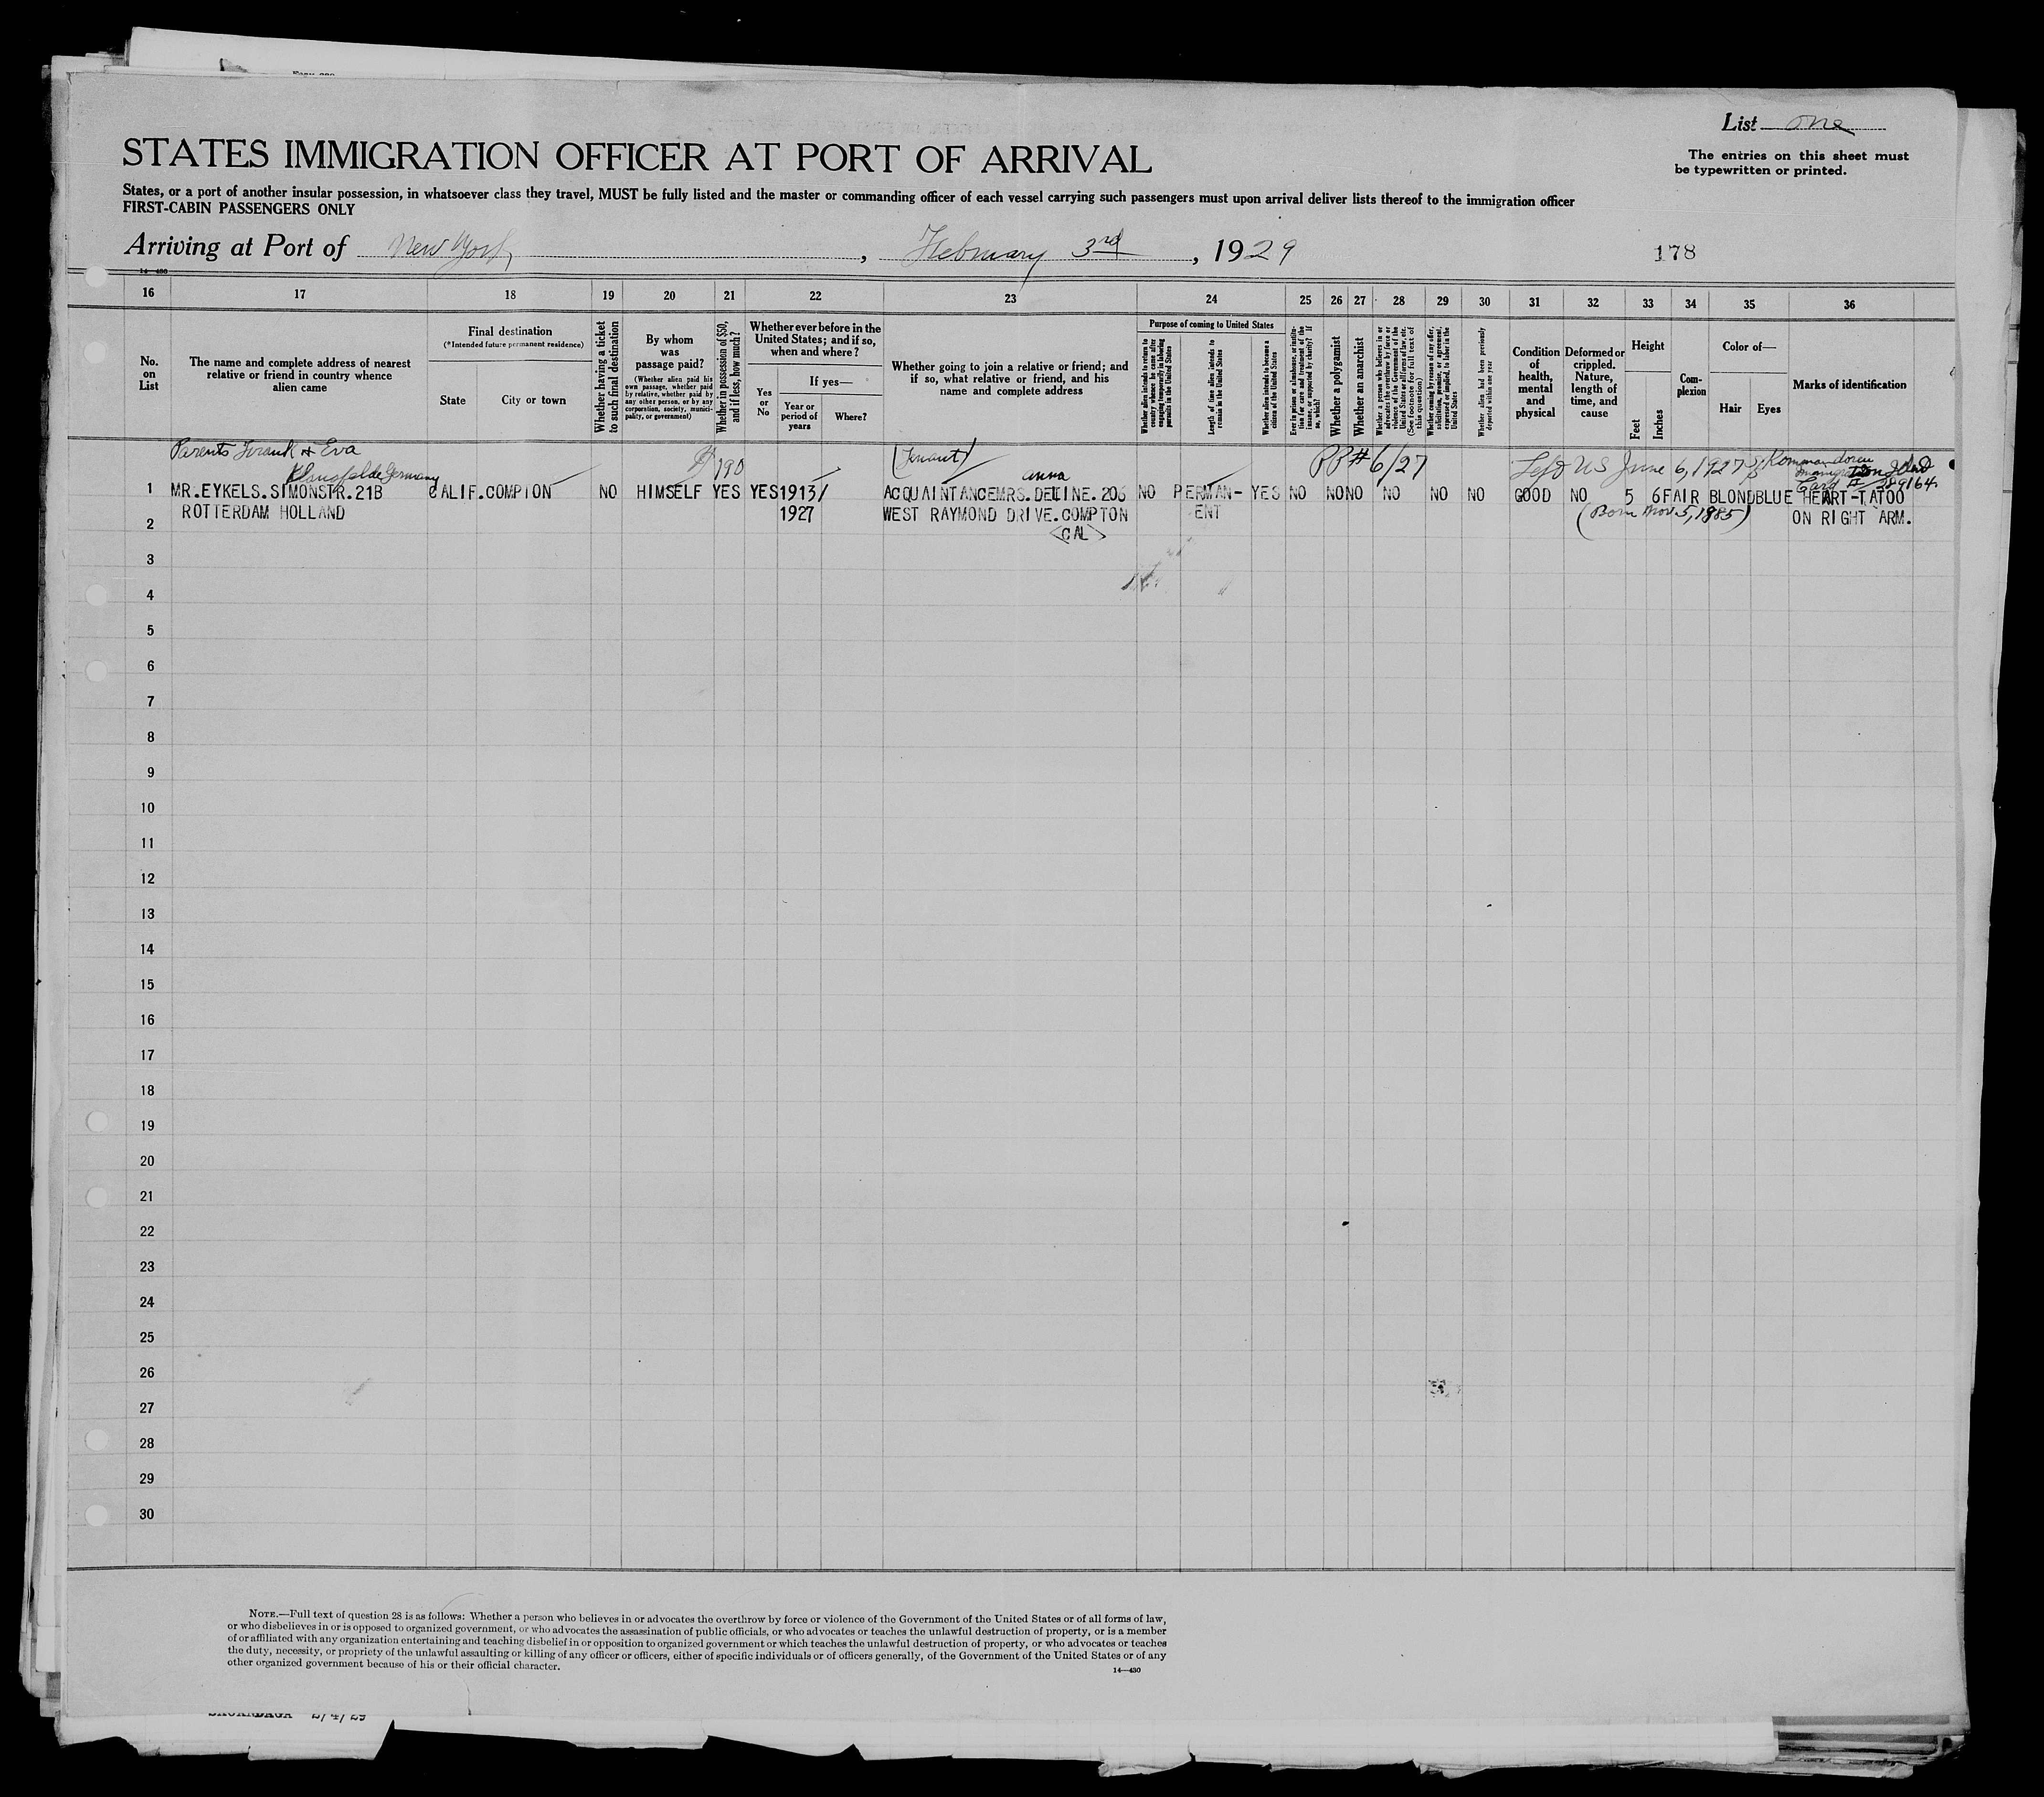 List one
The entries on this sheet must
be typewritten or printed.
STATES IMMIGRATION OFFICER AT PORT OF ARRIVAL
States, or a port of another insular possession, in whatsoever class they travel, MUST be fully listed and the master or commanding officer of each vessel carrying such passengers must upon arrival deliver lists thereof to the immigration officer
FIRST-CABIN PASSENGERS ONLY
Arriving at Port of New York, February 3rd, 1929
178
14-430
16 17 18 19 20 21 22 23 24 25 26 27 28 29 30 31 32 33 34 35 36
No.
on
List
The name and complete address of nearest
relative or friend in country whence
alien came
Final destination
(*Intended future permanent residence)
State
City or town
Whether having a ticket
to such final destination
By whom
was
passage paid?
(Whether alien paid his
own passage, whether paid
by relative, whether paid by
any other person, or by any
corporation, society, munici-
pality, or government)
Whether in possession of $50,
and if less, how much?
Whether ever before in the
United States; and if so,
when and where?
Yes
or
No
If yes—
Year or
period of
years
Where?
Whether going to join a relative or friend; and
if so, what relative or friend, and his
name and complete address
Purpose of coming to United States
Whether alien intends to return to
country whence he came after
engaging temporarily in laboring
pursuits in the United States
Length of time alien intends to
remain in the United States
Whether alien intends to become a
citizen of the United States
Ever in prison or almshouse, or institu-
tion for care and treatment of the
insane, or supported by charity? If
so, which?
Whether a polygamist
Whether an anarchist
Whether a person who believes in or
advocates the overthrow by force or
violence of the Government of the
United States or all forms of law, etc.
(See footnote for full text of
this question)
Whether coming by reason of any offer,
solicitation, promise, or agreement,
expressed or implied, to labor in the
United States
Whether alien had been previously
deported within one year
Condition
of
health,
mental
and
physical
Deformed or
crippled.
Nature,
length of
time, and
cause
Height
Feet
Inches
Com-
plexion
Color of—
Hair
Eyes
Marks of identification
Parents Frank & Eva
Germany
190
(Tenant)
anna
PP# 6/27
Left US June 6, 1927
Card # 289164
1 MR.EYKELS.SIMONSTR.21B CALIF.COMPTON NO HIMSELF YES YES 1913/ ACQUAINTANCEMRS.DELINE.206 NO PERMAN- YES NO NO NO NO NO NO GOOD NO 5 6 FAIR BLOND BLUE HEART-TATOO
ROTTERDAM HOLLAND 1927 WEST RAYMOND DRIVE.COMPTON ENT (Born Nov. 5, 1885) ON RIGHT ARM.
2
<CAL>
3
4
5
6
7
8
9
10
11
12
13
14
15
16
17
18
19
20
21
22
23
24
25
26
27
28
29
30
NOTE.—Full text of question 28 is as follows: Whether a person who believes in or advocates the overthrow by force or violence of the Government of the United States or of all forms of law,
or who disbelieves in or is opposed to organized government, or who advocates the assassination of public officials, or who advocates or teaches the unlawful destruction of property, or is a member
of or affiliated with any organization entertaining and teaching disbelief in or opposition to organized government or which teaches the unlawful destruction of property, or who advocates or teaches
the duty, necessity, or propriety of the unlawful assaulting or killing of any officer or officers, either of specific individuals or of officers generally, of the Government of the United States or of any
other organized government because of his or their official character.
14-430
2/4/29